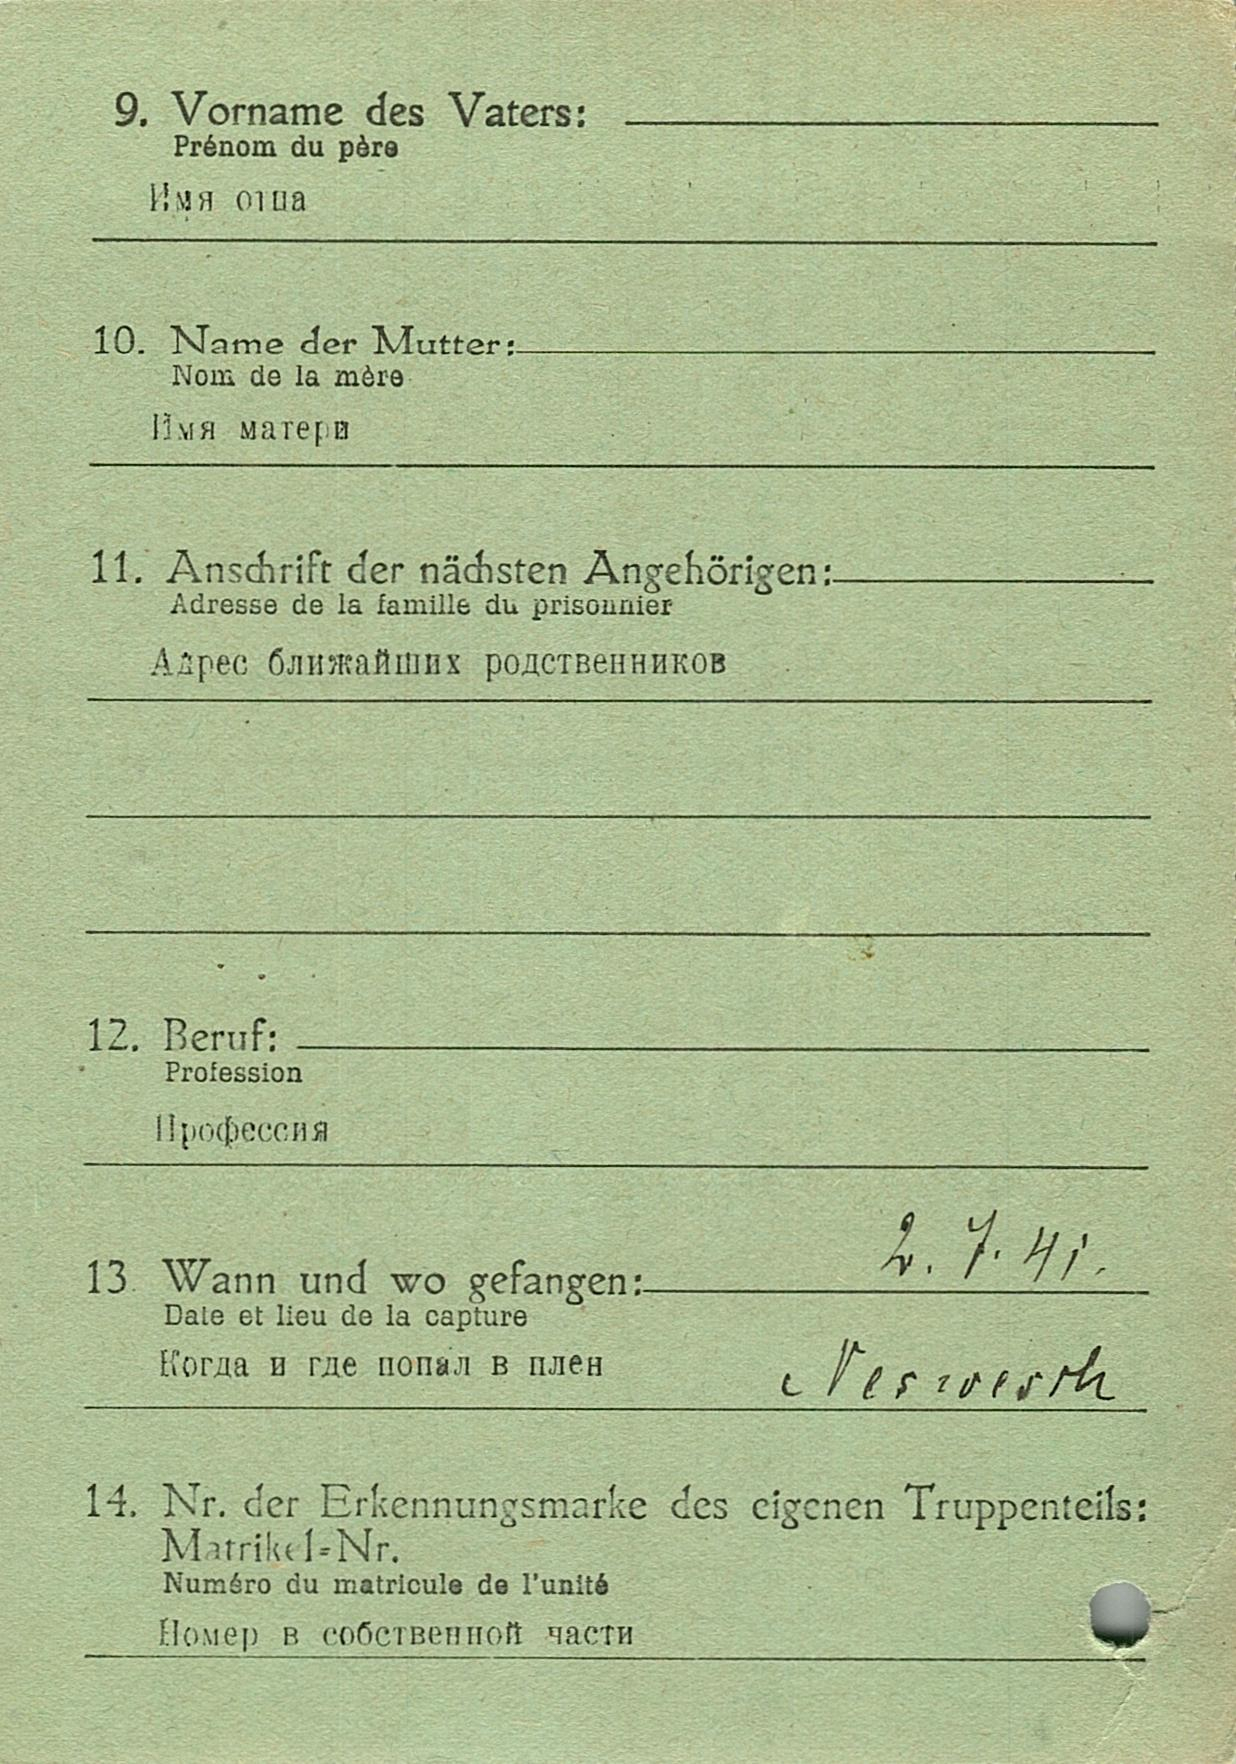 9. Vorname des Vaters:
Prénom du père
Имя отца
10. Name der Mutter:
Nom de la mère
Имя матери
11. Anschrift der nächsten Angehörigen:
Adresse de la famille du prisonnier
Адрес ближайших родственников
12. Beruf:
Profession
Профессия
2. 7. 41.
13. Wann und wo gefangen:
Date et lieu de la capture
Когда и где попал в плен
Neswesch
14. Nr. der Erkennungsmarke des eigenen Truppenteils:
Matrikel-Nr.
Numéro du matricule de l'unité
Номер в собственной части